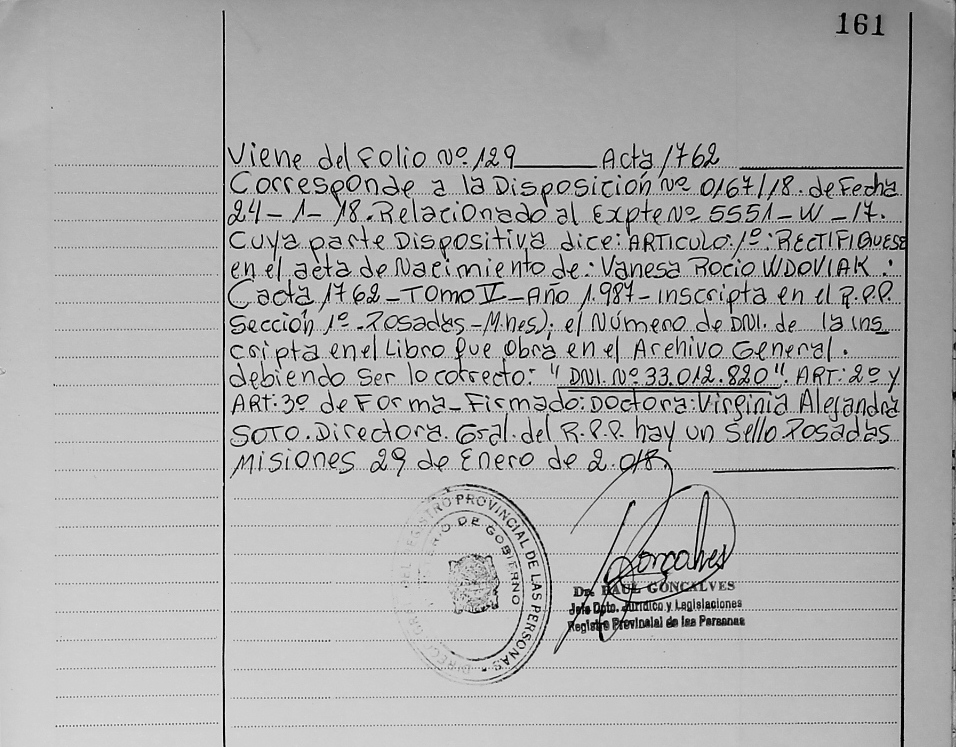 161
Viene del Folio Nº 129 Acta 1762
Corresponde a la Disposición Nº 0167/18. de Fecha
24-1-18. Relacionado al Expte Nº 5551-W-17.
Cuya parte Dispositiva dice: ARTICULO: 1º: RECTIFIQUESE
en el acta de Nacimiento de: Vanesa Rocio WDOVIAK.:
(acta 1762-TOMO V-Año 1.987-inscripta en el R.P.P.
Sección 1º-Posadas-Mnes); el Número de DNI. de la ins
cripta en el Libro que Obra en el Archivo General.
debiendo ser lo correcto: "DNI. Nº 33.012.820". ART: 2º y
ART: 3º de Forma-Firmado: Doctora: Virginia Alejandra
SOTO. Directora. Gral. del R.P.P. hay un sello Posadas
Misiones 29 de Enero de 2.018.
REGISTRO PROVINCIAL DE LAS PERSONAS
DE GOBIERNO
Goncalves
Dr. RAUL GONCALVES
Jefe Dpto. Jurídico y Legislaciones
Registro Provincial de las Personas